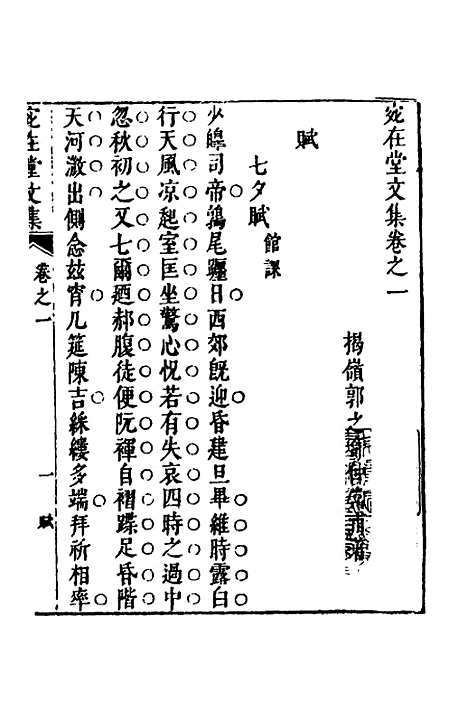 宛在堂文集卷之一
揭嶺郭之
賦
七夕賦 館課
少皞司帝鶉尾躔日西郊旣迎昏建旦畢維時露白
行天風凉起室匡坐驚心怳若有失哀四時之過中
忽秋初之又七爾廼郝腹徒便阮褌自褶蹀足昏階
天河激出側念兹宵几筵陳吉綵縷多端拜祈相率
宛在堂文集
卷之一
一
賦